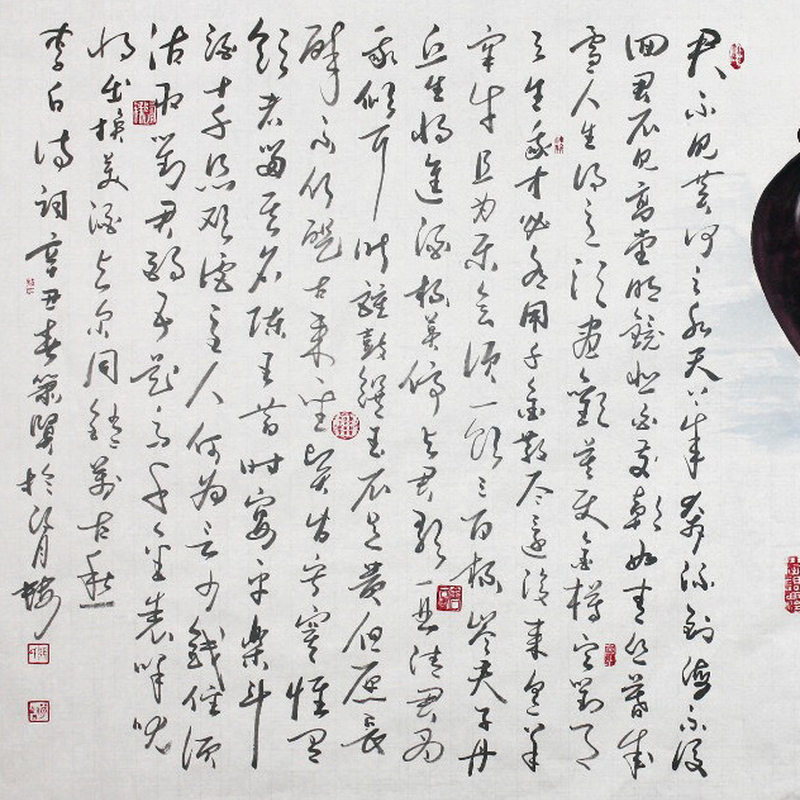 君不见黄河之水天上来奔流到海不復
回君不见高堂明鏡悲白髮朝如青丝暮成
雪人生得意须盡歡莫使金樽空對月
天生我才必有用千金散尽還復来烹羊
宰牛且为乐会须一饮三百杯岑夫子丹
丘生将進酒杯莫停与君歌一曲请君为
我倾耳听鐘鼓饌玉不足贵但愿长
醉不復醒古来圣贤皆寂寞惟有
飲者留其名陈王昔时宴平樂斗
酒十千恣欢谑主人何为言少钱径须
沽取對君酌五花马千金裘呼儿
将出换美酒与尔同銷萬古愁
李白诗詞辛丑春策贤於月楼